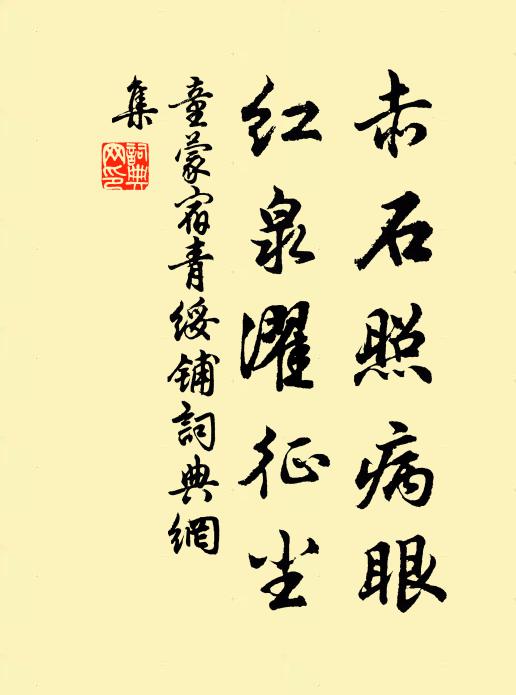 赤石照病眼
红泉濯征尘
童蒙宿青绥铺詞典網
集
詞典网印